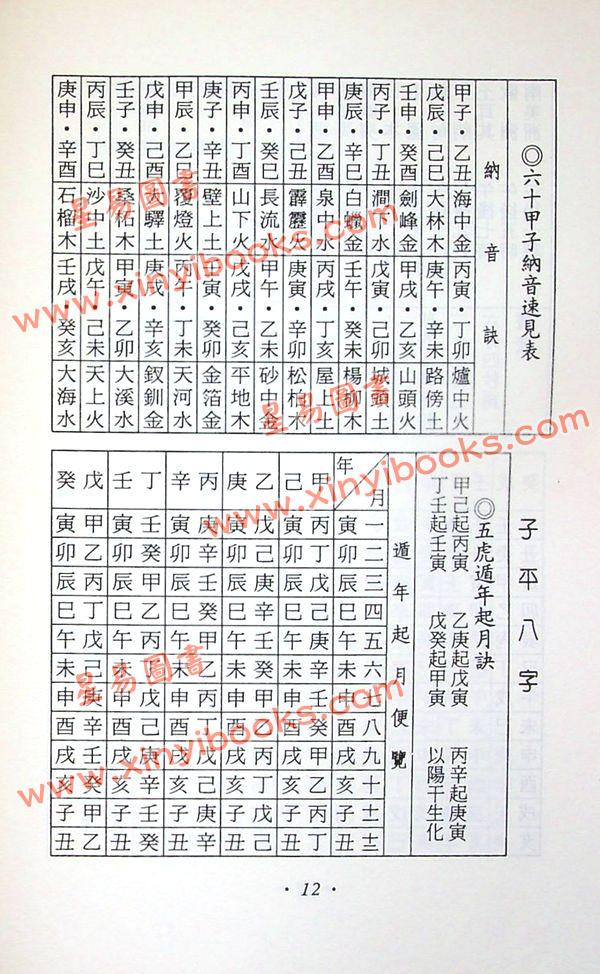 ◎六十甲子納音速見表
納音訣
甲子・乙丑 海中金 丙寅・丁卯 爐中火
戊辰・己巳 大林木 庚午・辛未 路傍土
壬申・癸酉 劍峰金 甲戌・乙亥 山頭火
丙子・丁丑 澗下水 戊寅・己卯 城頭土
庚辰・辛巳 白蠟金 壬午・癸未 楊柳木
甲申・乙酉 泉中水 丙戌・丁亥 屋上土
戊子・己丑 霹靂火 庚寅・辛卯 松柏木
壬辰・癸巳 長流水 甲午・乙未 砂中金
丙申・丁酉 山下火 戊戌・己亥 平地木
庚子・辛丑 壁上土 壬寅・癸卯 金箔金
甲辰・乙巳 覆燈火 丙午・丁未 天河水
戊申・己酉 大驛土 庚戌・辛亥 釵釧金
壬子・癸丑 桑柘木 甲寅・乙卯 大溪水
丙辰・丁巳 沙中土 戊午・己未 天上火
庚申・辛酉 石榴木 壬戌・癸亥 大海水
子平八字
◎五虎遁年起月訣
甲己起丙寅 乙庚起戊寅 丙辛起庚寅
丁壬起壬寅 戊癸起甲寅 以陽干生化
遁年起月便覽
月 一二三四五六七八九十十一十二
年 寅卯辰巳午未申酉戌亥子丑
甲 丙丁戊己庚辛壬癸甲乙丙丁
己 寅卯辰巳午未申酉戌亥子丑
乙 戊己庚辛壬癸甲乙丙丁戊己
庚 寅卯辰巳午未申酉戌亥子丑
丙 庚辛壬癸甲乙丙丁戊己庚辛
辛 寅卯辰巳午未申酉戌亥子丑
丁 壬癸甲乙丙丁戊己庚辛壬癸
壬 寅卯辰巳午未申酉戌亥子丑
戊 甲乙丙丁戊己庚辛壬癸甲乙
癸 寅卯辰巳午未申酉戌亥子丑
・12・
星易圖書
www.xinyibooks.com
星易圖書
www.xinyibooks.com
星易圖書
www.xinyibooks.com